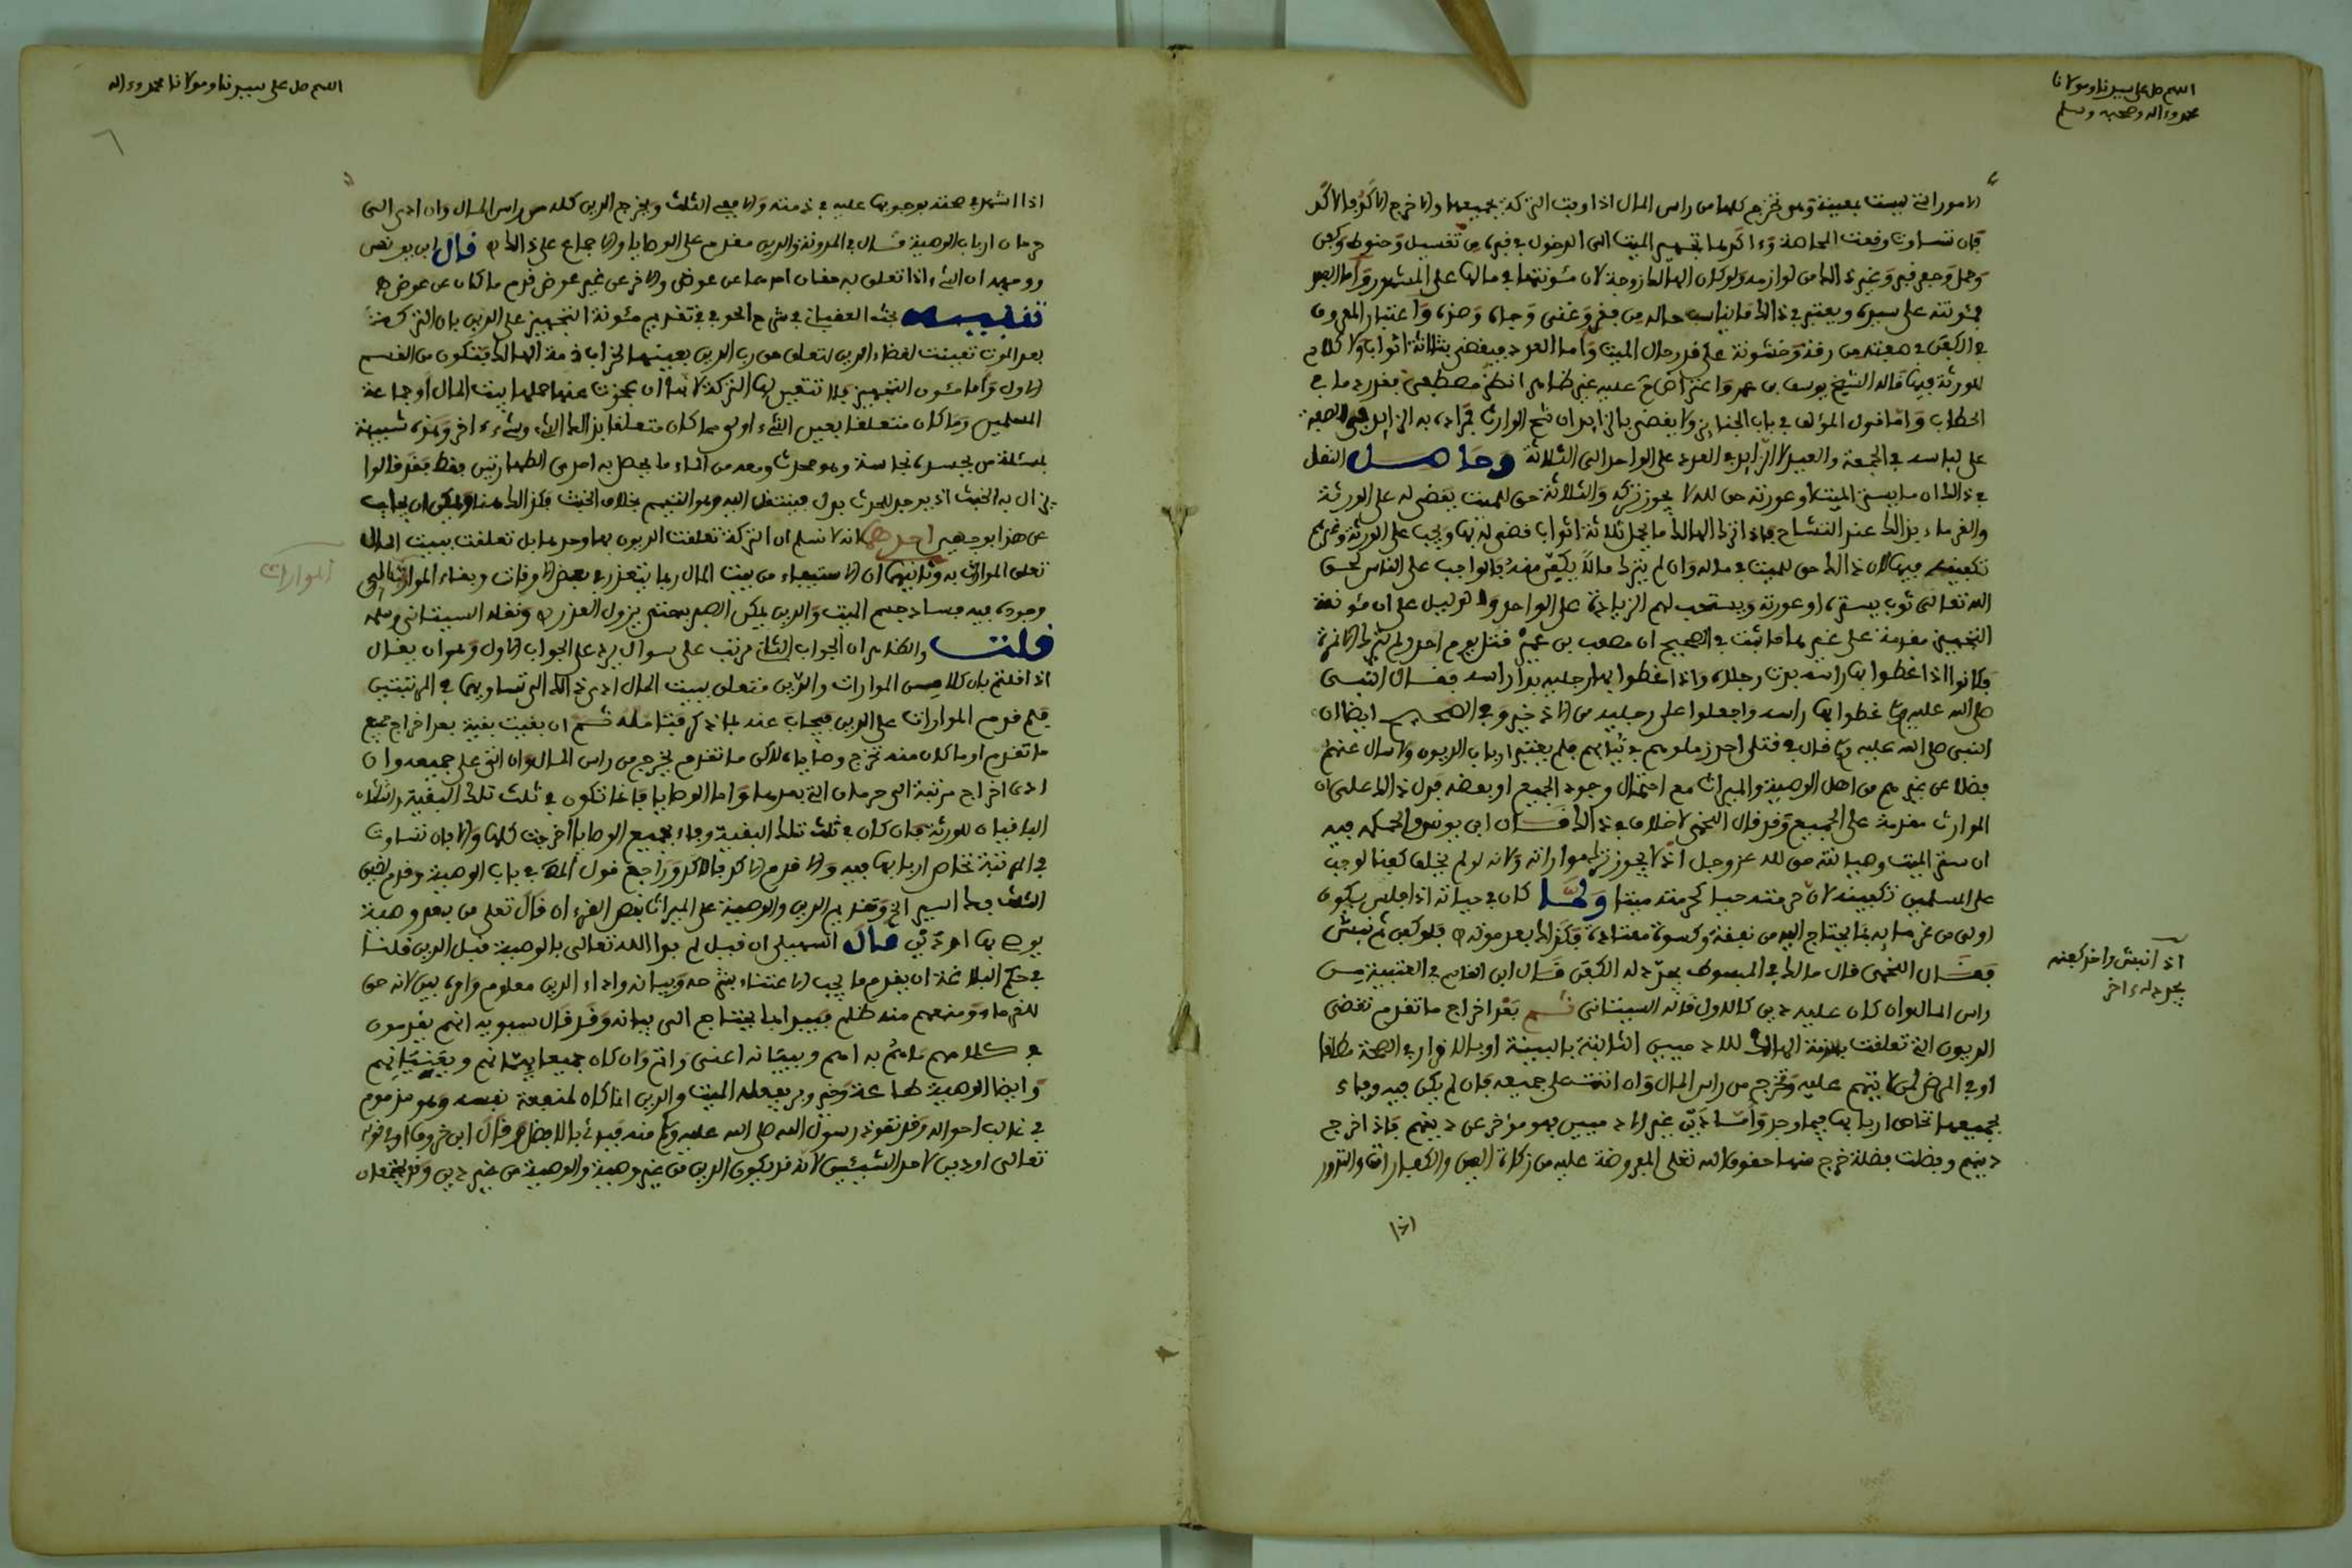 اللهم صل على سيدنا ومولانا
محمد وءاله وصحبه وسلم
الامور التي ليست بعينية وهو تخرج كلها من راس المال اذا وفت التركة بجميعها والا خرج الاكد فالاكد
فان تساوت وقعت المحاصة وءاكدها تجهيز الميت الى الدخول في قبره من تغسيل وحنوط وكفن
وحمل وحفر قبر وغير ذالك من لوازمه ولو كان الهالك زوجة لان مئونتها في مالها على المشهور واما العبد
فمئونته على سيده ويعتبر في ذالك ما يناسب حاله من فقر وغنى وجاه وضده واعتبار المعروف
في الكفن في صفته من رقة وخشونة على قدر حال الميت واما العدد فيقضى بثلاثة اثواب ولا كلام
للورثة فيها قاله الشيخ يوسف بن عمر واعتراض عليه غير ظاهر انظر مصطفى فقد رد ما في
الحطاب واما قول المؤلف في باب الجنائز ولا يقضى بالزائد ان شح الوارث فمراده به الزائد في الصفة
على لباسه في الجمعة والعيد لا الزائد في العدد على الواحد الى الثلاثة وحاصل النقل
في ذالك ان ما يستر الميت او عورته حق لله لا يجوز تركه والثلاثة حق للميت يقضى له على الورثة
والغرماء بذالك عند التشاح فاذا ترك الهالك ما يحمل ثلاثة اثواب قضي له بها ويجب على الورثة وغيرهم
تكفينه فيها لان ذالك حق للميت في ماله وان لم يترك مالا يكفن منه فالواجب على الناس لحق
الله تعالى ثوب يستره او عورته ويستحب لهم الزيادة على الواحد والدليل على ان مئونة
التجهيز مقدمة على غيرها ما ثبت في الصحيح ان مصعب بن عمير قتل يوم احد ولم يترك الا نمرة
فكانوا اذا غطوا بها راسه بدت رجلاه واذا غطوا بها رجليه بدا راسه فقال النبي
صلى الله عليه وسلم غطوا بها راسه واجعلوا على رجليه من الاذخر وفي الصحيح ايضا ان
النبي صلى الله عليه وسلم قال في قتلى احد زملوهم في ثيابهم فلم يعتبر ارباب الديون ولا سال عنهم
فضلا عن غيرهم من اهل الوصية والميراث مع احتمال وجود الجميع او بعضه فدل ذالك على ان
الموارات مقدمة على الجميع وقد قال اللخمي لا خلاف في ذالك قال ابن يونس والحكمة فيه
ان ستر الميت وصيانته حق لله عز وجل اذ لا يجوز ترك مواراته ولانه لو لم يخلف كفنا لوجب
على المسلمين تكفينه لان حرمته حيا كحرمته ميتا ولما كان في حياته اذا افلس يكون
اولى من غرمائه بما يحتاج اليه من نفقة وكسوة معتادة فكذا بعد موته فلو كفن ثم نبش
فقال اللخمي قال مالك في المبسوط يعاد له الكفن قال ابن القاسم في العتبية من
راس المال وان كان عليه دين كالاول قاله السيتاني ثم بعد اخراج ما تقدم تقضى
الديون التي تعلقت بذمة الهالك للادميين الثابتة بالبينة او بالاقرار في الصحة مطلقا
او في المرض لمن لا يتهم عليه وتخرج من راس المال وان اتت على جميعه فان لم يكن فيه وفاء
بجميعها تحاص اربابها فيما وجد واما دين غير الادميين فهو مؤخر عن دينهم فاذا اخرج
دينهم وفضلت فضلة خرج منها حقوق الله تعلى المفروضة عليه من زكاة العين والكفارات والنذور
اذ انبش واخذ كفنه
يعاد له ءاخر
اذا
اللهم صل على سيدنا ومولانا محمد وءاله
٦
اذا اشهد في صحته بوجوبها عليه في ذمته والا ففي الثلث ويخرج الدين كله من راس المال وان ادى الى
حرمان ارباب الوصية قال في المدونة والدين مقدم على الوصايا والاجماع على ذالك قال ابن يونس
ووجهه ان الشيء اذا تعلق به حقان احدهما عن عوض والاخر عن غير عوض قدم ما كان عن عوض
تنبيه بحث العقباني في شرح الحوفي في تقديم مئونة التجهيز على الدين بان التركة
بعد الموت تعينت لقضاء الدين لتعلق حق رب الدين بعينها لخراب ذمة الهالك فتكون من القسم
الاول واما مئون التجهيز فلا تتعين لها التركة لانها ان عجزت عنها حملها بيت المال او جماعة
المسلمين وما كان متعلقا بعين الشيء اولى مما كان متعلقا بذالك الشيء وبشيء ءاخر وهذه شبيهة
بمسئلة من بجسده نجاسة وهو محدث ومعه من الماء ما يحصل به احدى الطهارتين فقط فقد قالوا
يزال به الخبث اذ يوجد للحدث بدل فينتقل اليه وهو التيمم بخلاف الخبث فكذالك هنا ويمكن ان يجاب
عن هذا بوجهين احدهما انه لا نسلم ان التركة تعلقت الديون بها وحدها بل تعلقت ببيت المال
تعلق الموارات به وثانيهما ان الاستيفاء من بيت المال ربما يتعذر في بعض الاوقات وبقاء الموارات الى
وجوده فيه فساد جسم الميت والدين يمكن الصبر به حتى يزول العذر ونقله السيتاني وسلمه
قلت والظاهر ان الجواب الثاني مرتب على سوال يرد على الجواب الاول وهو ان يقال
اذا قلتم بان كلا من الموارات والدين متعلق ببيت المال ادى ذالك الى تساويهما في المرتبتين
فلم قدم الموارات على الدين فيجاب عنه بما ذكر فتامله ثم ان بقيت بقية بعد اخراج جميع
ما تقدم او ما كان منه تخرج وصاياه لاكن ما تقدم يخرج من راس المال وان اتى على جميعه وان
ادى اخراج مرتبة الى حرمان التي بعدها واما الوصايا فانما تكون في ثلث تلك البقية والثلثان
الباقيان للورثة فان كان في ثلث تلك البقية وفاء بجميع الوصايا اخرجت كلها والا فان تساوت
في المرتبة تحاص اربابها فيه والا قدم الاكد فالاكد وراجع قول المص في باب الوصية وقدم لضيق
الثلث فك اسير الخ وتقديم الدين والوصية على الميراث بنص القرءان قال تعلى من بعد وصية
يوصى بها او دين قال السهيلي ان قيل لم بدا الله تعالى بالوصية قبل الدين قلنا
في حكم البلاغة ان يقدم ما يجب الاعتناء بشرحه وبيانه واداء الدين معلوم وامره بين لانه حق
للغرماء ومنعهم منه ظلم فبيد بما يحتاج الى بيانه وقد قال سيبويه انهم يقدمون
في كلامهم ما هم به اهم وببيانه اعنى واتم وان كان جميعا يهمانهم ويعنيانهم
وايضا الوصية طاعة وخير وبر يفعله الميت والدين انما كان لمنفعة نفسه وهو مذموم
في غالب احواله وقد تعوذ رسول الله صلى الله عليه وسلم منه فبدئ بالافضل قال ابن خروف او في قوله
تعالى او دين لاحد الشيئين لانه قد يكون الدين من غير وصية والوصية من غير دين وقد يجتمعان
الموارات